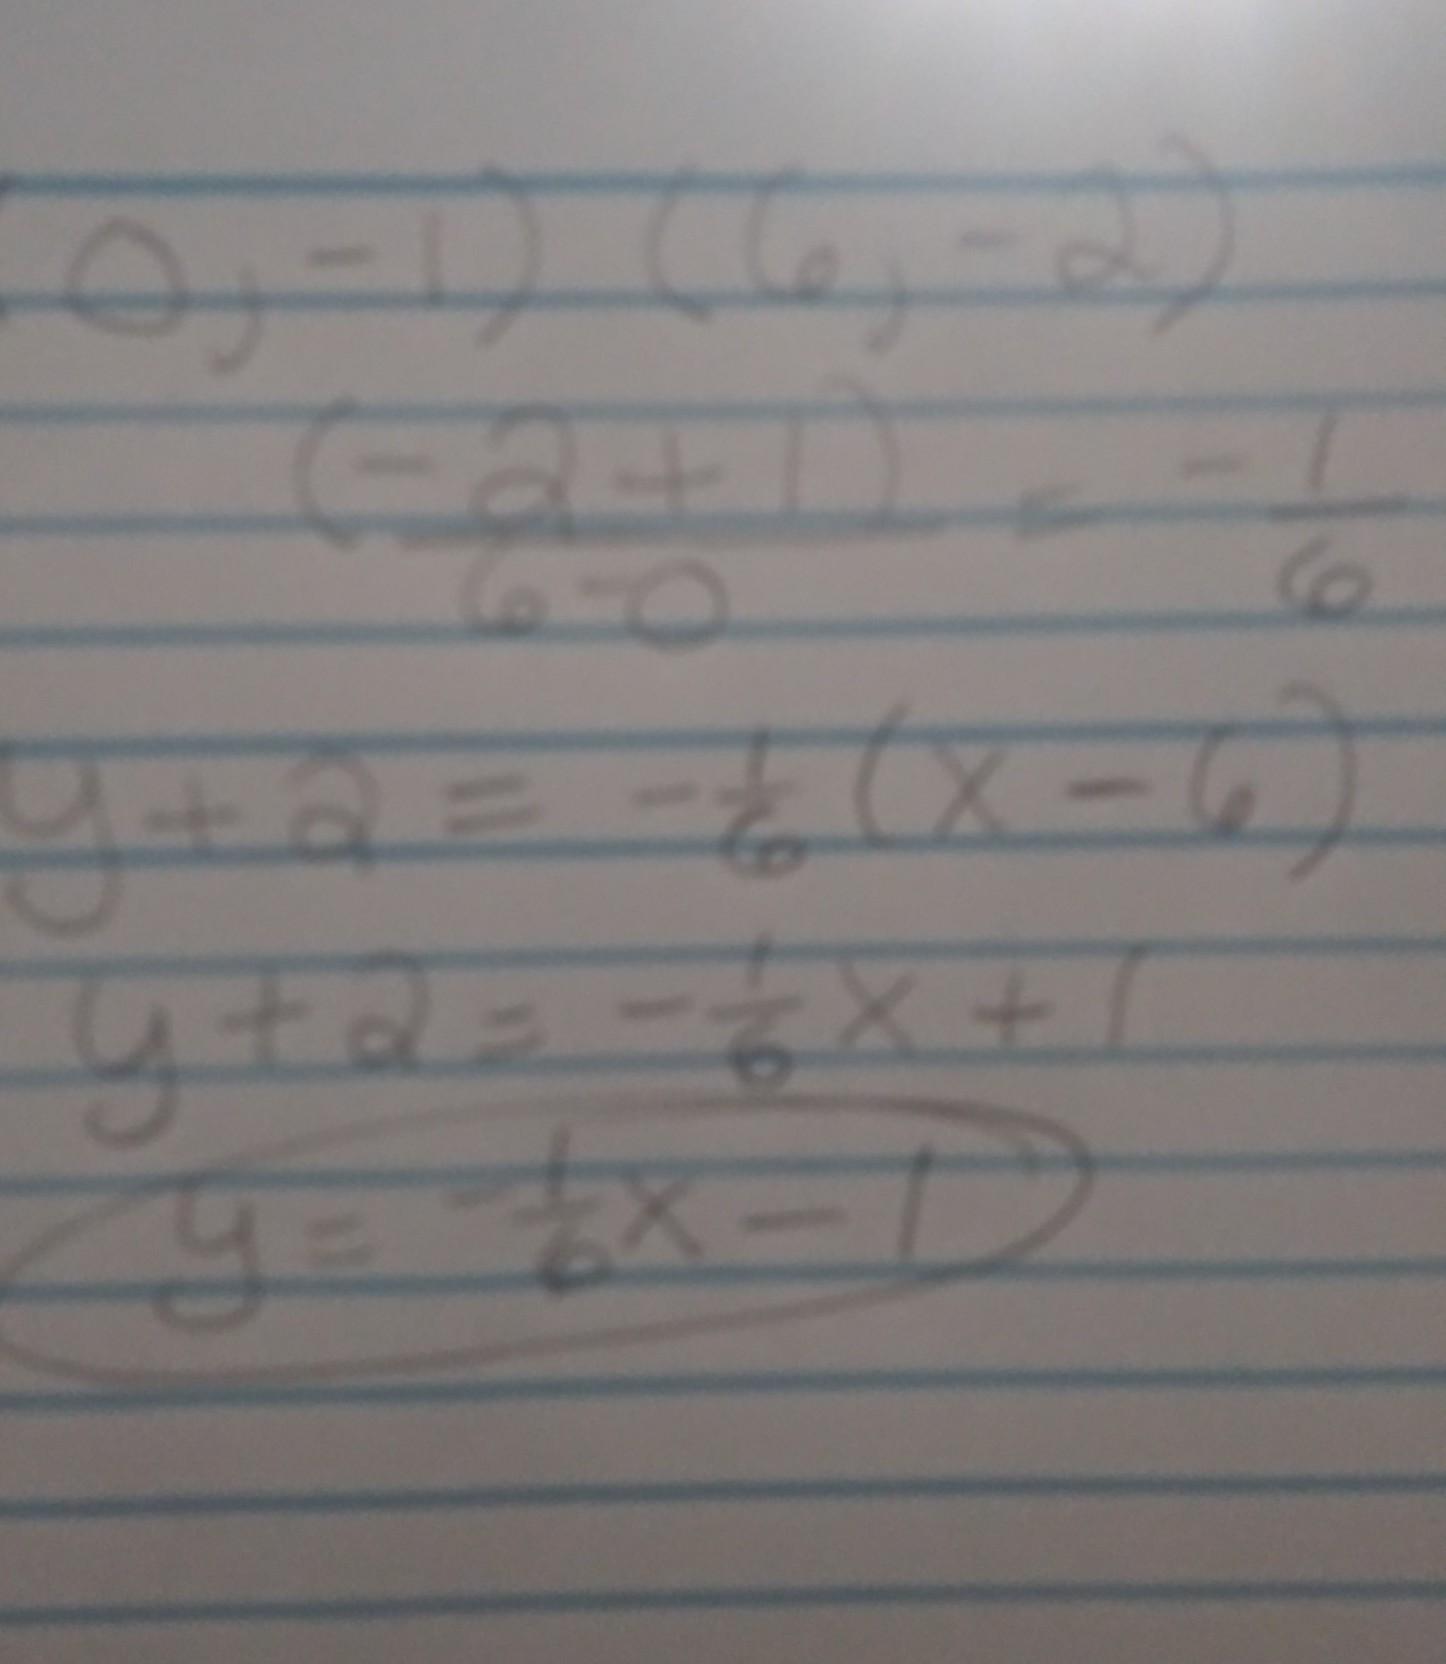 (0, -1) (6, -2)
(-2+1)/6-0 = -1/6
y+2 = -1/6(x-6)
y+2 = -1/6x+1
y = -1/6x-1